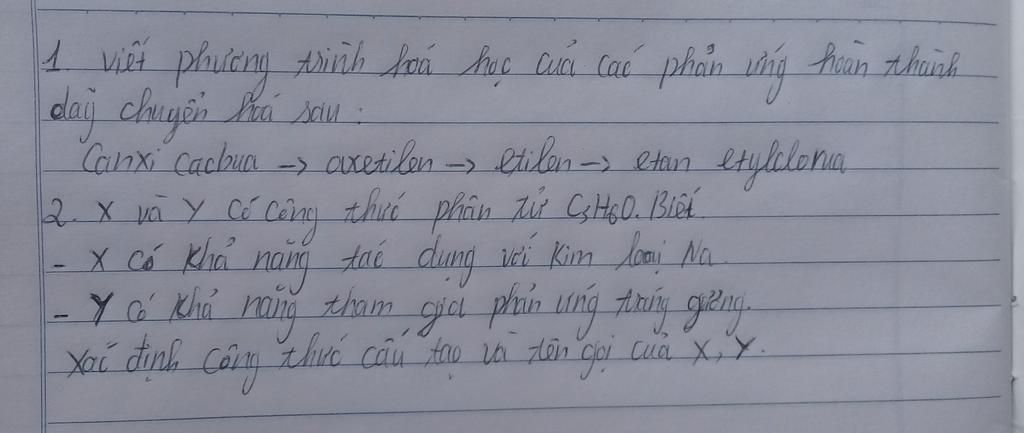 1 viết phương trình hoá học của các phản ứng hoàn thành
dãy chuyển hoá sau:
Canxi cacbua -> axetilen -> etilen -> etan etylclorua
2. X và Y có công thức phân tử C3H6O. Biết
- X có khả năng tác dụng với kim loại Na.
- Y có khả năng tham gia phản ứng tráng gương.
Xác định công thức cấu tạo và tên gọi của X, Y.